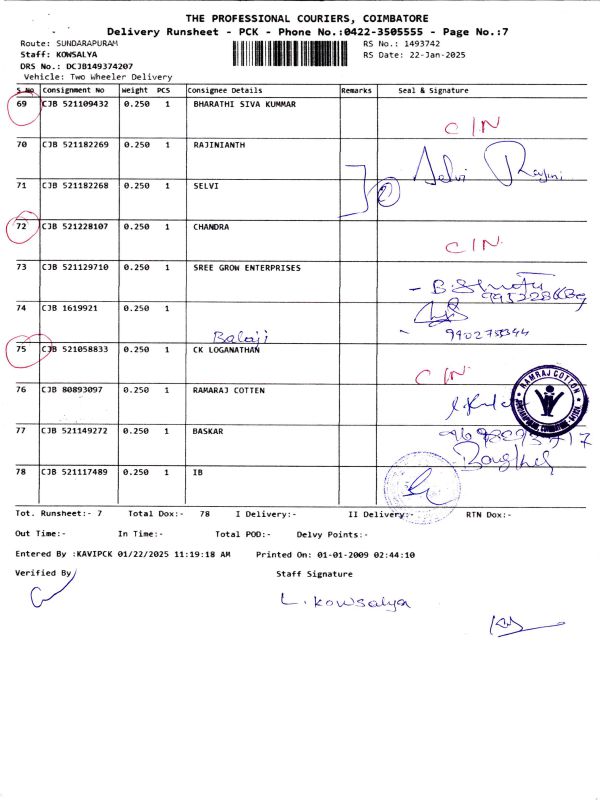 THE PROFESSIONAL COURIERS, COIMBATORE
Delivery Runsheet - PCK - Phone No.:0422-3505555 - Page No.:7
Route: SUNDARAPURAM
RS No.: 1493742
Staff: KOWSALYA
RS Date: 22-Jan-2025
DRS No.: DCJB149374207
Vehicle: Two Wheeler Delivery
S No Consignment No Weight PCS Consignee Details Remarks Seal & Signature
69 CJB 521109432 0.250 1 BHARATHI SIVA KUMMAR
C/N
70 CJB 521182269 0.250 1 RAJINIANTH
Selvi Rajini
71 CJB 521182268 0.250 1 SELVI
2
72 CJB 521228107 0.250 1 CHANDRA
C/N
73 CJB 521129710 0.250 1 SREE GROW ENTERPRISES
74 CJB 1619921 0.250 1
Balaji
75 CJB 521058833 0.250 1 CK LOGANATHAN
C/N
76 CJB 80893097 0.250 1 RAMARAJ COTTEN
RAMRAJ COTTON
77 CJB 521149272 0.250 1 BASKAR
78 CJB 521117489 0.250 1 IB
Tot. Runsheet:- 7 Total Dox:- 78 I Delivery:- II Delivery:- RTN Dox:-
Out Time:- In Time:- Total POD:- Delvy Points:-
Entered By :KAVIPCK 01/22/2025 11:19:18 AM Printed On: 01-01-2009 02:44:10
Verified By Staff Signature
L. Kowsalya